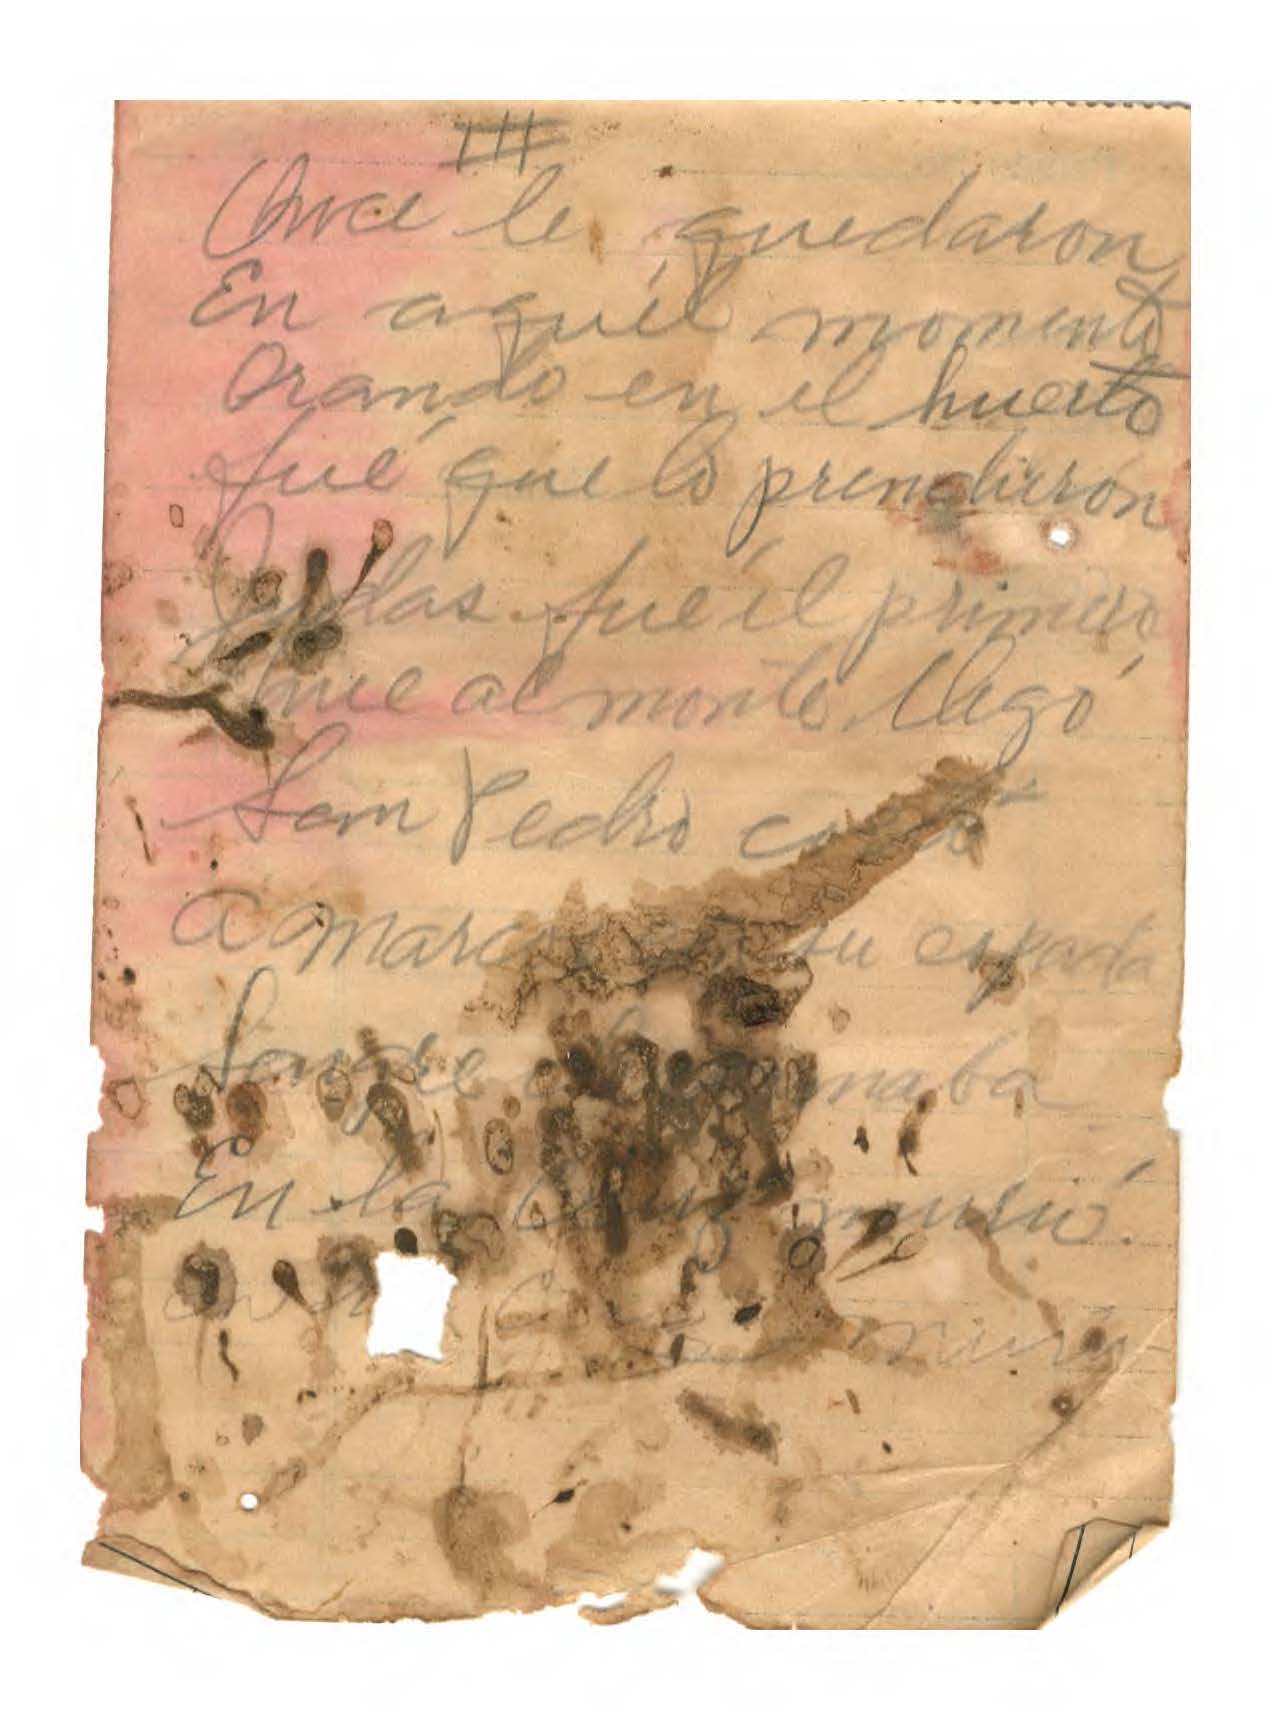 III
Once le quedaron
En aquél momento
Orando en el huerto
fué que lo prendieron
Judas fué él primero
que al monte llegó
San Pedro
a Marco su espada
Sangre
En la Cruz murió.